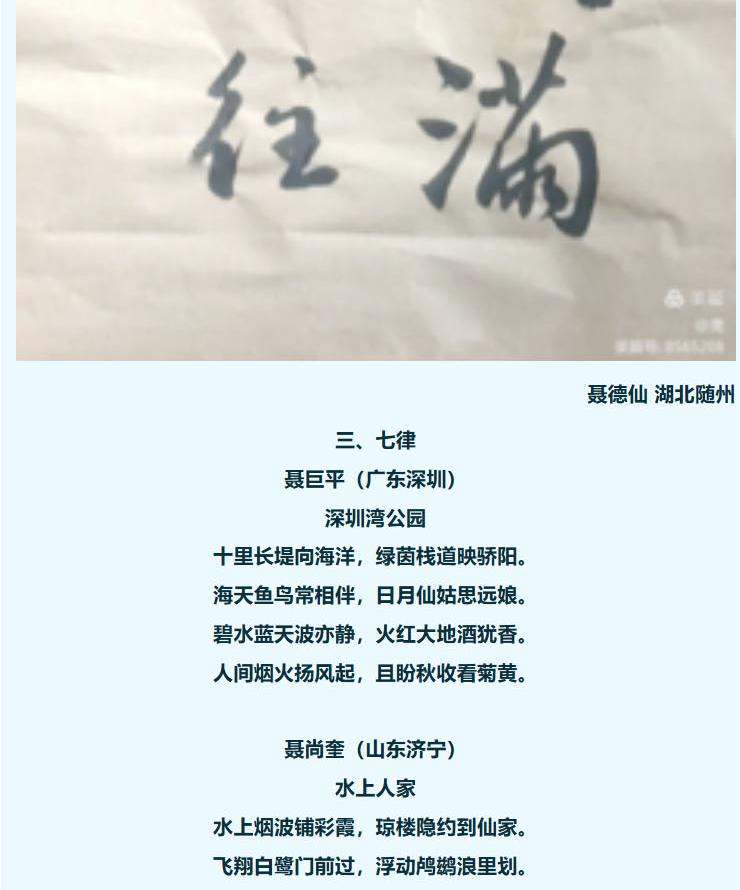 往 满
聂德仙 湖北随州
三、七律
聂巨平（广东深圳）
深圳湾公园
十里长堤向海洋，绿茵栈道映骄阳。
海天鱼鸟常相伴，日月仙姑思远娘。
碧水蓝天波亦静，火红大地酒犹香。
人间烟火扬风起，且盼秋收看菊黄。
聂尚奎（山东济宁）
水上人家
水上烟波铺彩霞，琼楼隐约到仙家。
飞翔白鹭门前过，浮动鸬鹚浪里划。